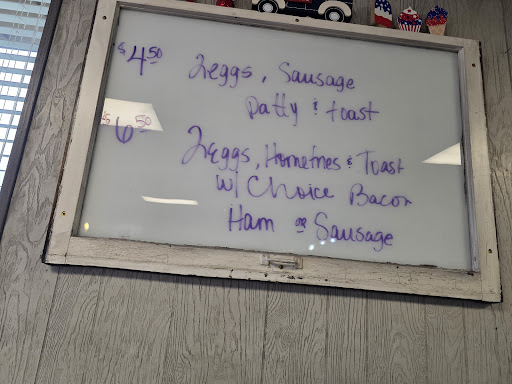 $4.50 2 eggs, Sausage
Patty & toast
$6.50 2 eggs, Homefries & Toast
w/ Choice Bacon
Ham or Sausage